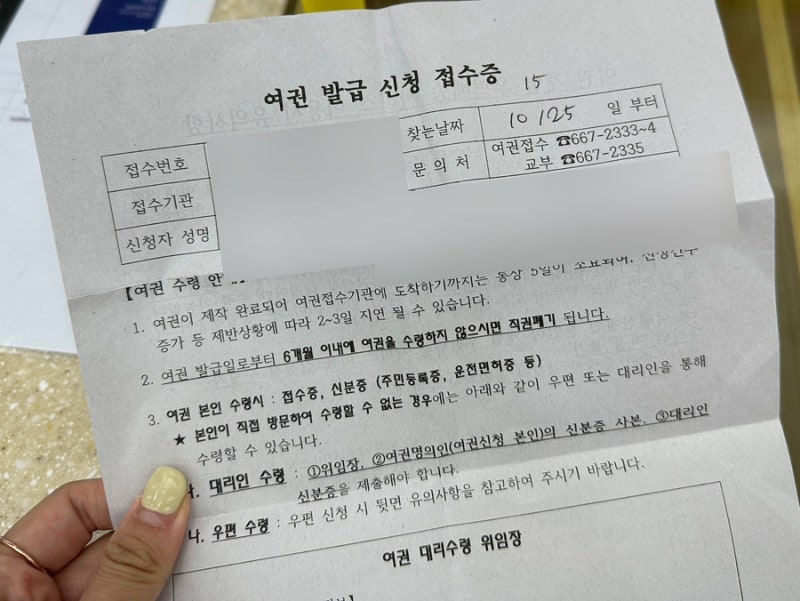 여권 발급 신청 접수증
15
찾는날짜 10 /25 일 부터
접수번호
문 의 처 여권접수 ☎667-2333~4
교부 ☎667-2335
접수기관
신청자 성명
【여권 수령 안
1. 여권이 제작 완료되어 여권접수기관에 도착하기까지는 통상 5일이 소요되며, 신청건수
증가 등 제반상황에 따라 2~3일 지연 될 수 있습니다.
2. 여권 발급일로부터 6개월 이내에 여권을 수령하지 않으시면 직권폐기 됩니다.
3. 여권 본인 수령시 : 접수증, 신분증 (주민등록증, 운전면허증 등)
★ 본인이 직접 방문하여 수령할 수 없는 경우에는 아래와 같이 우편 또는 대리인을 통해
수령할 수 있습니다.
대리인 수령 : ①위임장, ②여권명의인(여권신청 본인)의 신분증 사본, ③대리인
신분증을 제출해야 합니다.
나. 우편 수령 : 우편 신청 시 뒷면 유의사항을 참고하여 주시기 바랍니다.
여권 대리수령 위임장